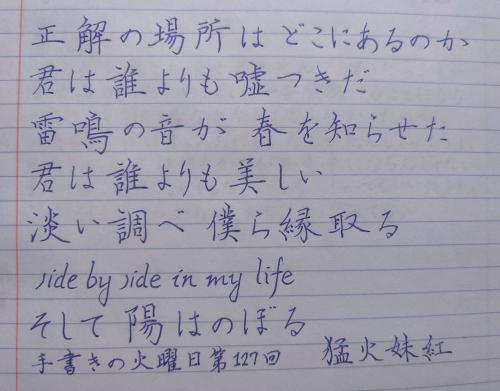 正解の場所は どこにあるのか
君は誰よりも嘘つきだ
雷鳴の音が 春を知らせた
君は誰よりも美しい
淡い調べ 僕ら縁取る
side by side in my life
そして陽はのぼる
手書きの火曜日第127回 猛火妹紅